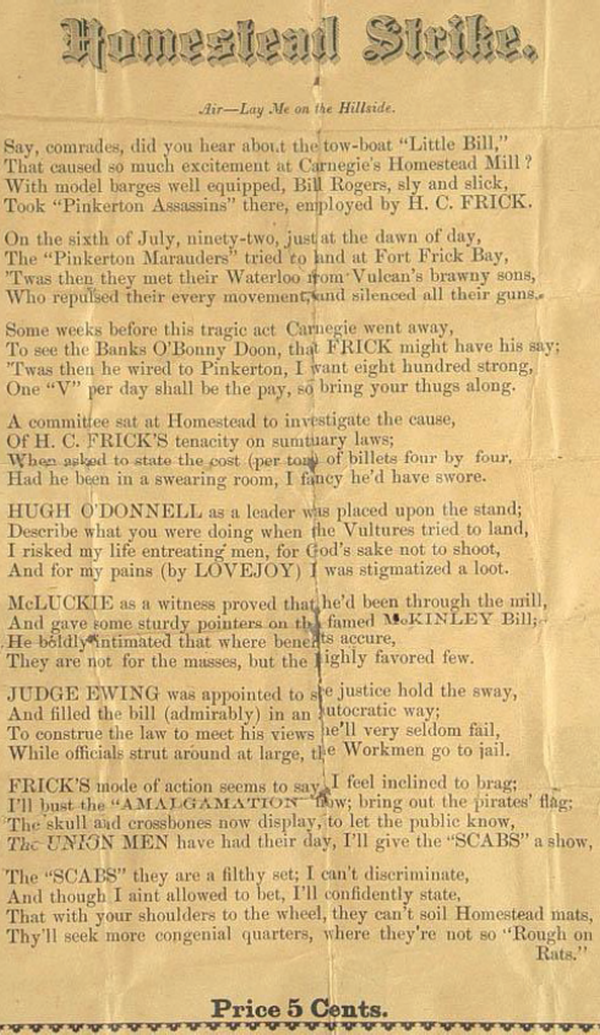 Homestead Strike.
Air—Lay Me on the Hillside.
Say, comrades, did you hear about the tow-boat “Little Bill,”
That caused so much excitement at Carnegie's Homestead Mill?
With model barges well equipped, Bill Rogers, sly and slick,
Took “Pinkerton Assassins” there, employed by H. C. FRICK.
On the sixth of July, ninety-two, just at the dawn of day,
The “Pinkerton Marauders” tried to land at Fort Frick Bay,
'Twas then they met their Waterloo from Vulcan's brawny sons,
Who repulsed their every movement, and silenced all their guns.
Some weeks before this tragic act Carnegie went away,
To see the Banks O'Bonny Doon, that FRICK might have his say;
'Twas then he wired to Pinkerton, I want eight hundred strong,
One “V” per day shall be the pay, so bring your thugs along.
A committee sat at Homestead to investigate the cause,
Of H. C. FRICK'S tenacity on sumtuary laws;
When asked to state the cost (per ton) of billets four by four,
Had he been in a swearing room, I fancy he'd have swore.
HUGH O'DONNELL as a leader was placed upon the stand;
Describe what you were doing when the Vultures tried to land,
I risked my life entreating men, for God's sake not to shoot,
And for my pains (by LOVEJOY) I was stigmatized a loot.
McLUCKIE as a witness proved that he'd been through the mill,
And gave some sturdy pointers on the famed McKINLEY Bill;
He boldly intimated that where benefits accure,
They are not for the masses, but the highly favored few.
JUDGE EWING was appointed to see justice hold the sway,
And filled the bill (admirably) in an autocratic way;
To construe the law to meet his views he'll very seldom fail,
While officials strut around at large, the Workmen go to jail.
FRICK'S mode of action seems to say, I feel inclined to brag;
I'll bust the “AMALGAMATION” now; bring out the pirates' flag;
The skull and crossbones now display, to let the public know,
The UNION MEN have had their day, I'll give the “SCABS” a show,
The “SCABS” they are a filthy set; I can't discriminate,
And though I aint allowed to bet, I'll confidently state,
That with your shoulders to the wheel, they can't soil Homestead mats,
Thy'll seek more congenial quarters, where they're not so “Rough on
Rats.”
Price 5 Cents.